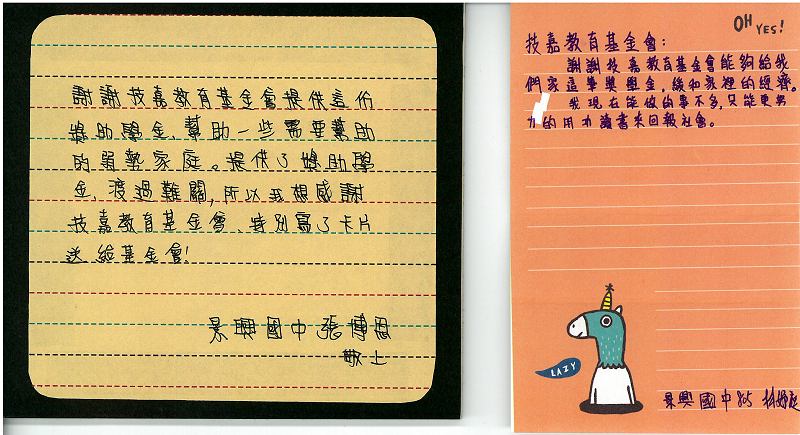 謝謝技嘉教育基金會提供這份
獎助學金，幫助一些需要幫助
的弱勢家庭。提供了獎助學
金，渡過難關，所以我想感謝
技嘉教育基金會，特別寫了卡片
送給基金會！
景興國中 張博恩
敬上
OH YES!
技嘉教育基金會：
謝謝技嘉教育基金會能夠給我
們家這筆獎學金，緩和家裡的經濟。
我現在能做的事不多，只能更努
力的用力讀書來回報社會。
LAZY
景興國中 805 林妤庭